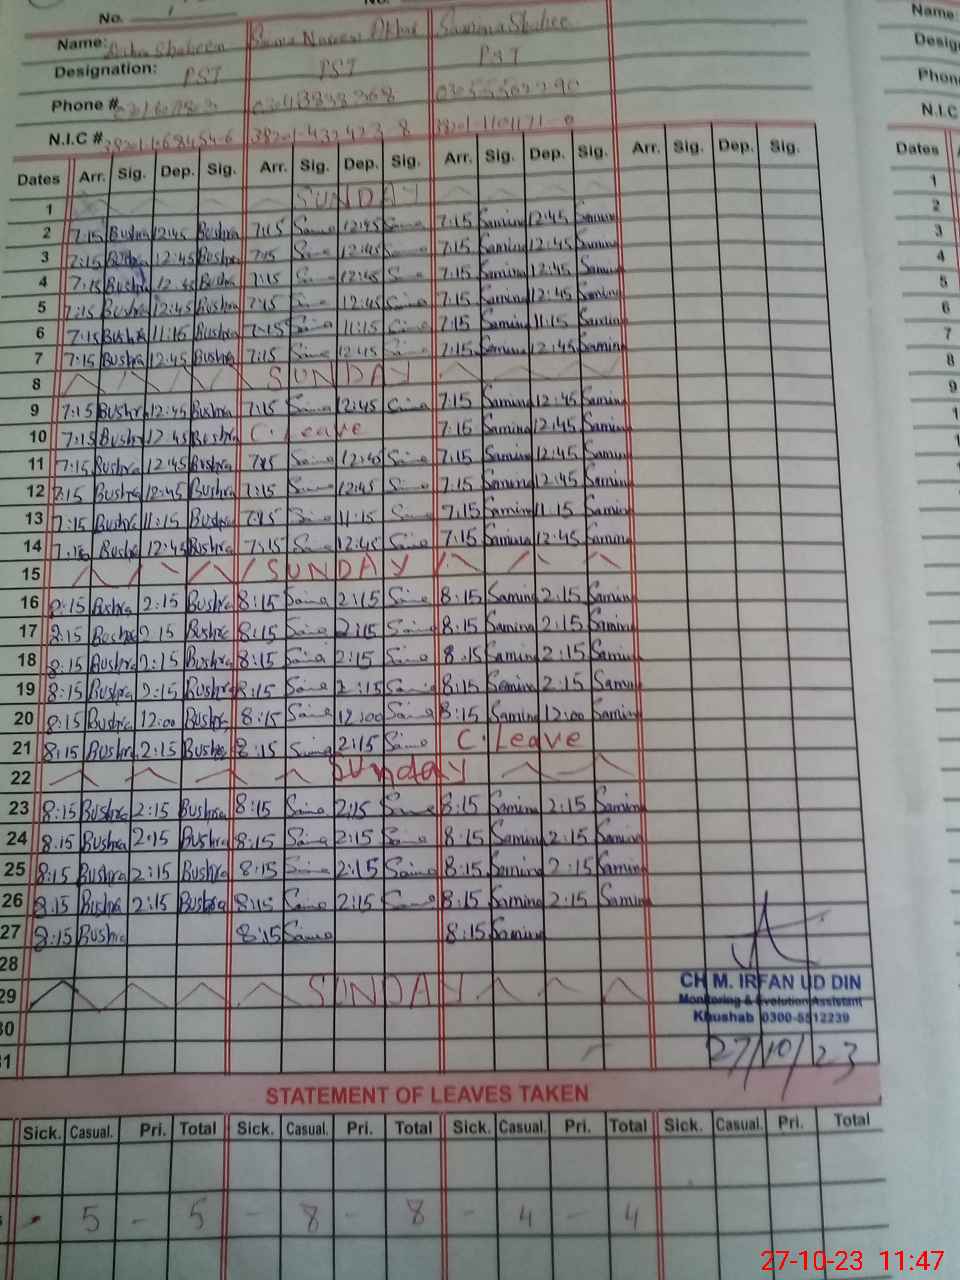 No. 1 No.
Name: Shaheen Naveen Samina Shahee Name:
Designation: PST PST PST Desig
Phone # Phon
N.I.C # N.I.C
Dates Arr. Sig. Dep. Sig. Arr. Sig. Dep. Sig. Arr. Sig. Dep. Sig. Arr. Sig. Dep. Sig. Dates
1 SUNDAY 1
2 7:15 Bushra 12:45 Bushra 7:15 Saima 12:45 Saima 7:15 Samina 12:45 Samina 2
3 7:15 Bushra 12:45 Bushra 7:15 Saima 12:45 Saima 7:15 Samina 12:45 Samina 3
4 7:15 Bushra 12:45 Bushra 7:15 Saima 12:45 Saima 7:15 Samina 12:45 Samina 4
5 7:15 Bushra 12:45 Bushra 7:15 Saima 12:45 Saima 7:15 Samina 12:45 Samina 5
6 7:15 Bushra 11:15 Bushra 7:15 Saima 11:15 Saima 7:15 Samina 11:15 Samina 6
7 7:15 Bushra 12:45 Bushra 7:15 Saima 12:45 Saima 7:15 Samina 12:45 Samina 7
8 SUNDAY 8
9 7:15 Bushra 12:45 Bushra 7:15 Saima 12:45 Saima 7:15 Samina 12:45 Samina 9
10 7:15 Bushra 12 45 Bushra C. Leave 7:15 Samina 12:45 Samina
11 7:15 Bushra 12:45 Bushra 7:15 Saima 12:45 Saima 7:15 Samina 12:45 Samina
12 7:15 Bushra 12:45 Bushra 7:15 Saima 12:45 Saima 7:15 Samina 12:45 Samina
13 7:15 Bushra 11:15 Bushra 7:15 Saima 11:15 Saima 7:15 Samina 11:15 Samina
14 7:15 Bushra 12:45 Bushra 7:15 Saima 12:45 Saima 7:15 Samina 12:45 Samina
15 SUNDAY
16 8:15 Bushra 2:15 Bushra 8:15 Saima 2:15 Saima 8:15 Samina 2:15 Samina
17 8:15 Bushra 2 15 Bushra 8:15 Saima 2:15 Saima 8:15 Samina 2:15 Samina
18 8:15 Bushra 2:15 Bushra 8:15 Saima 2:15 Saima 8:15 Samina 2:15 Samina
19 8:15 Bushra 2:15 Bushra 8:15 Saima 2:15 Saima 8:15 Samina 2:15 Samina
20 8:15 Bushra 12:00 Bushra 8:15 Saima 12:00 Saima 8:15 Samina 12:00 Samina
21 8:15 Bushra 2:15 Bushra 8:15 Saima 2:15 Saima C. Leave
22 Sunday
23 8:15 Bushra 2:15 Bushra 8:15 Saima 2:15 Saima 8:15 Samina 2:15 Samina
24 8:15 Bushra 2:15 Bushra 8:15 Saima 2:15 Saima 8:15 Samina 2:15 Samina
25 8:15 Bushra 2:15 Bushra 8:15 Saima 2:15 Saima 8:15 Samina 2:15 Samina
26 8:15 Bushra 2:15 Bushra 8:15 Saima 2:15 Saima 8:15 Samina 2:15 Samina
27 8:15 Bushra 8:15 Saima 8:15 Samina
28
29 SUNDAY
CH M. IRFAN UD DIN
Monitoring & Evolution Assistant
Khushab 0300-5512239
30
31
27/10/23
STATEMENT OF LEAVES TAKEN
Sick. Casual. Pri. Total Sick. Casual. Pri. Total Sick. Casual. Pri. Total Sick. Casual. Pri. Total
- 5 - 5 - 8 - 8 - 4 - 4
27-10-23 11:47